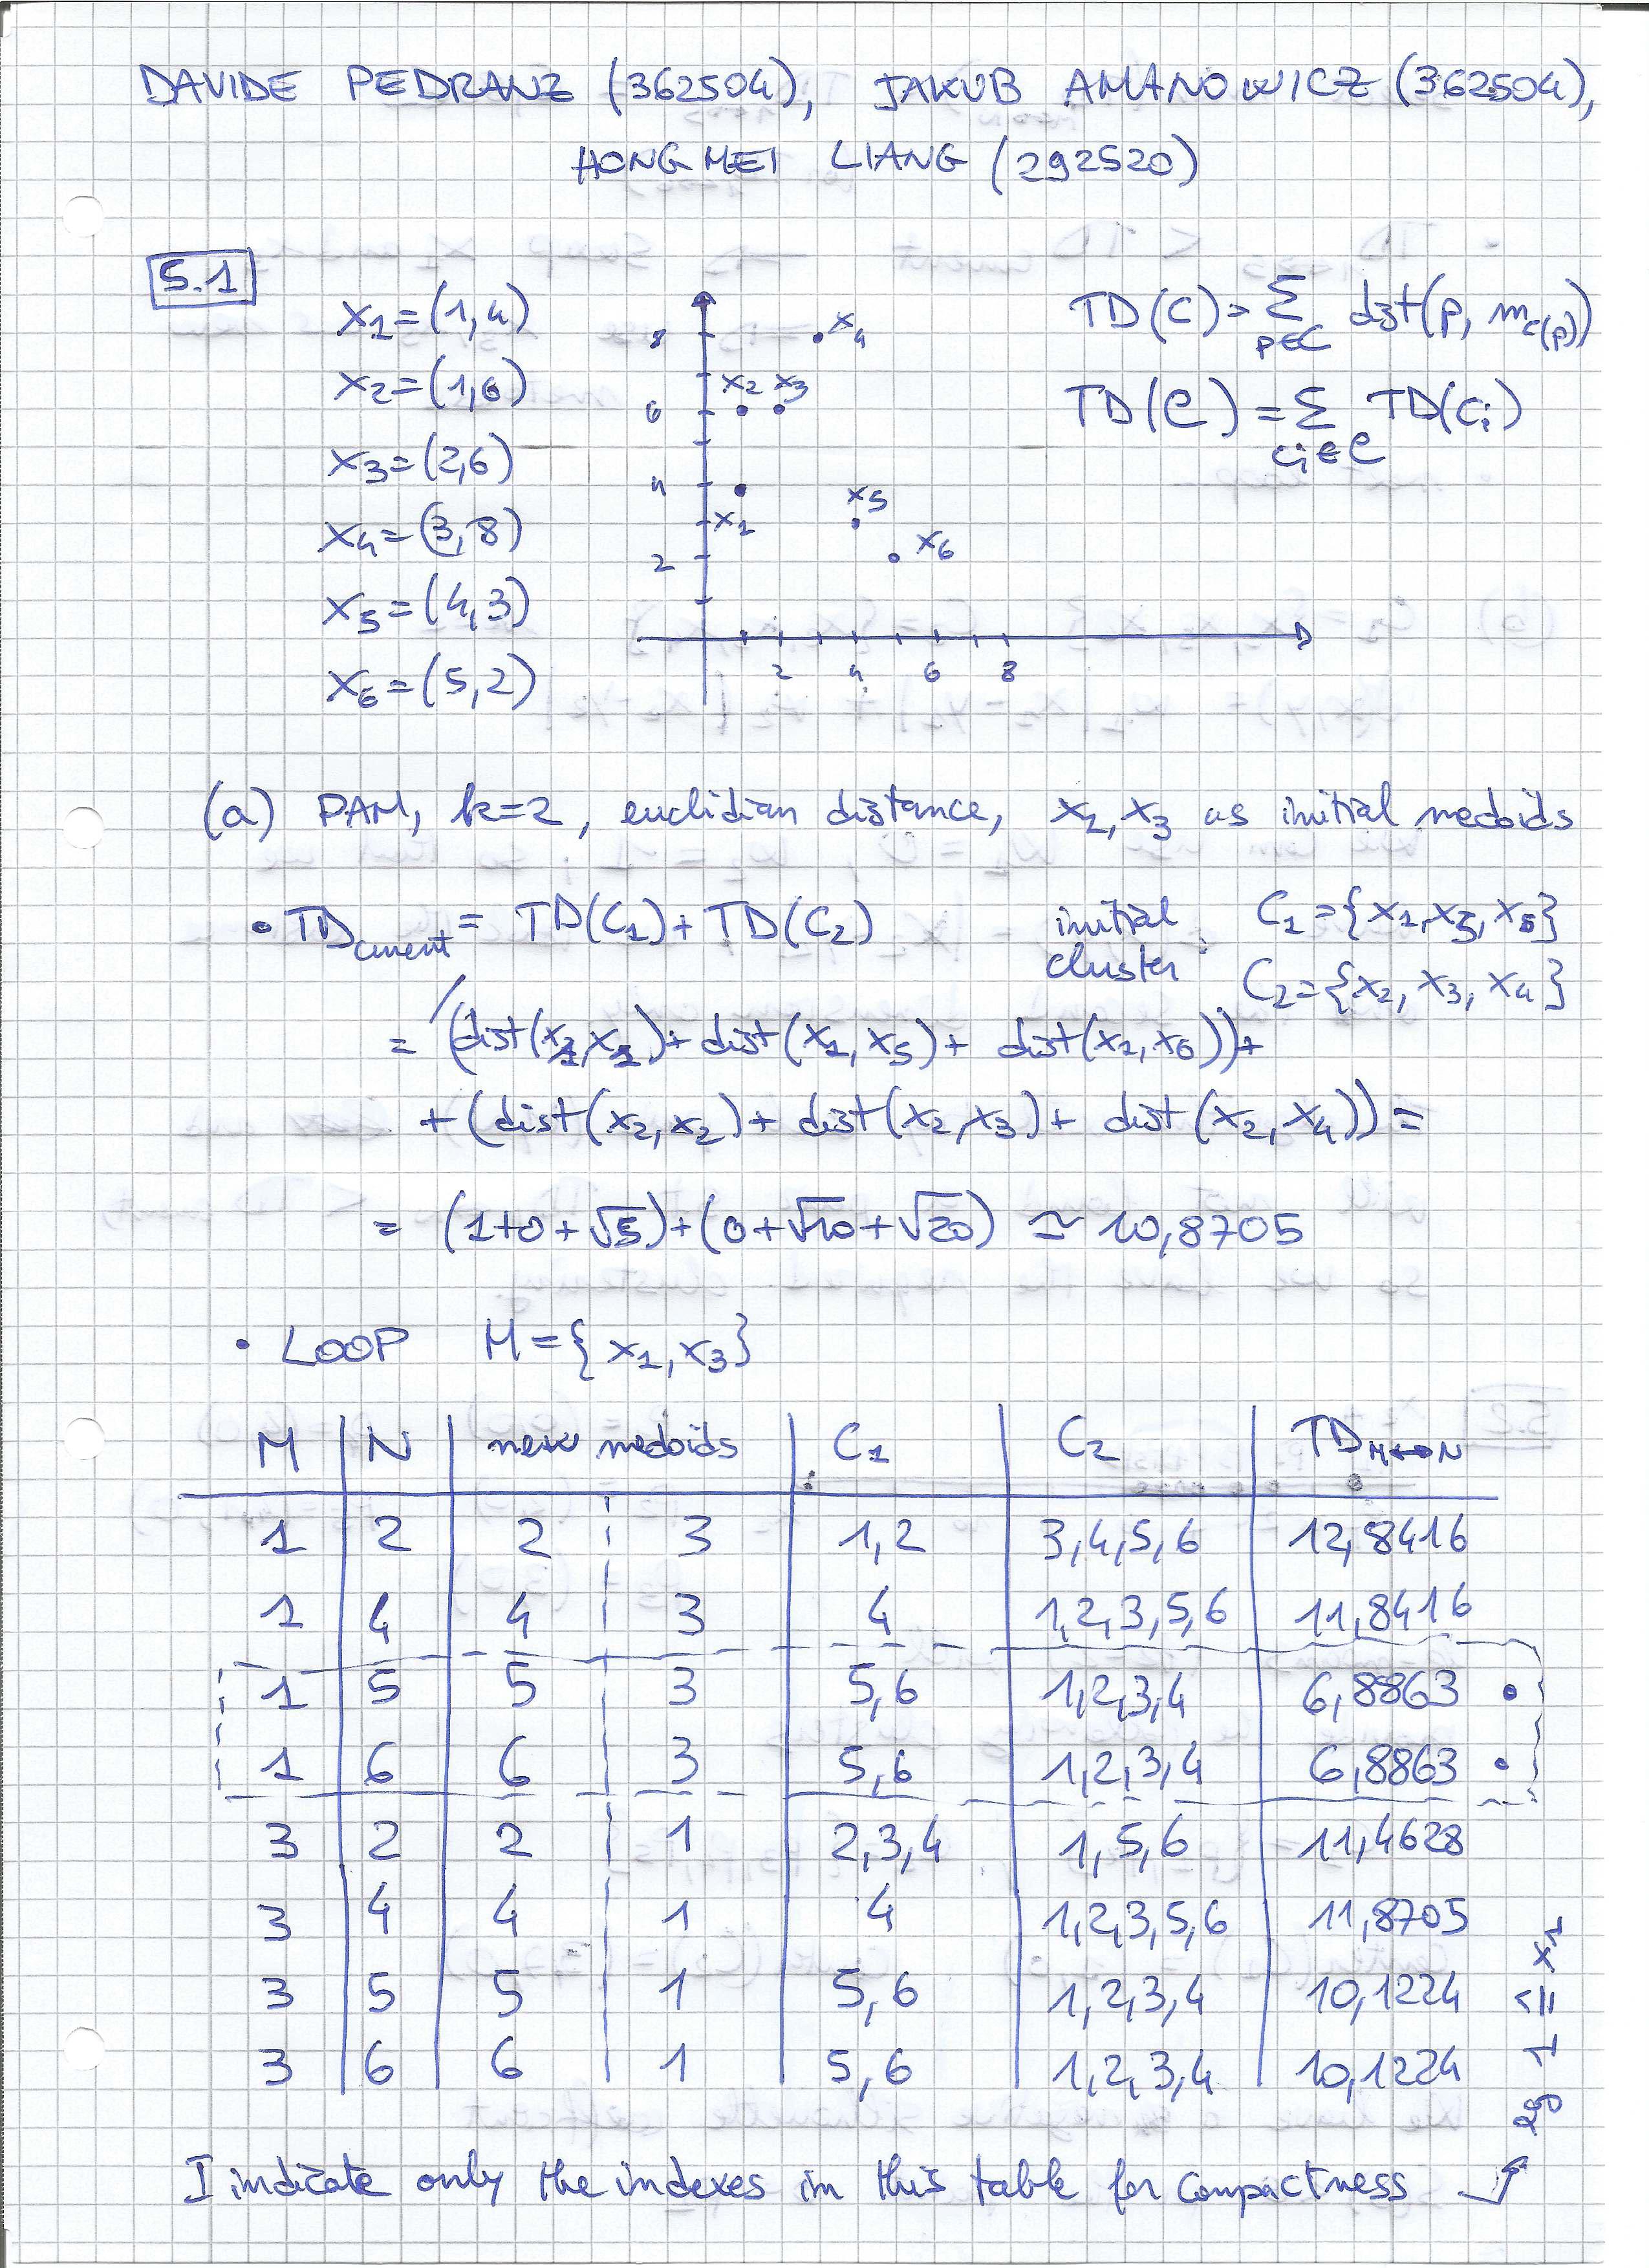 DAVIDE PEDRANZ (362504), JAKUB AMANOWICZ (362504),
HONGMEI LIANG (292520)
5.1
x1=(1,4)
x2=(1,6)
x3=(2,6)
x4=(3,8)
x5=(4,3)
x6=(5,2)
8 x4
x2 x3
6
4 x5
x1
2 x6
2 4 6 8
TD(C) = Σ p∈C dist(p, m c(p))
TD(C) = Σ Ci∈C TD(Ci)
(a) PAM, k=2, euclidian distance, x1, x3 as initial medoids
• TDcurrent = TD(C1)+TD(C2) initial cluster : C1={x1,x5,x6}
C2={x2, x3, x4}
= (dist(x1,x1)+ dist(x1, x5)+ dist(x1, x6))+
+ (dist(x2,x2)+ dist(x2,x3)+ dist(x2, x4)) =
= (1+0+√5)+(0+√10+√20) ≃ 10,8705
• LOOP M={x1, x3}
M N new medoids C1 C2 TD M↔N
1 2 2 3 1,2 3,4,5,6 12,8416
1 4 4 3 4 1,2,3,5,6 11,8416
1 5 5 3 5,6 1,2,3,4 6,8863 •
1 6 6 3 5,6 1,2,3,4 6,8863 •
3 2 2 1 2,3,4 1,5,6 11,4628
3 4 4 1 4 1,2,3,5,6 11,8705
3 5 5 1 5,6 1,2,3,4 10,1224
3 6 6 1 5,6 1,2,3,4 10,1224
I indicate only the indexes in this table for compactness
eg 1 ≙ x1